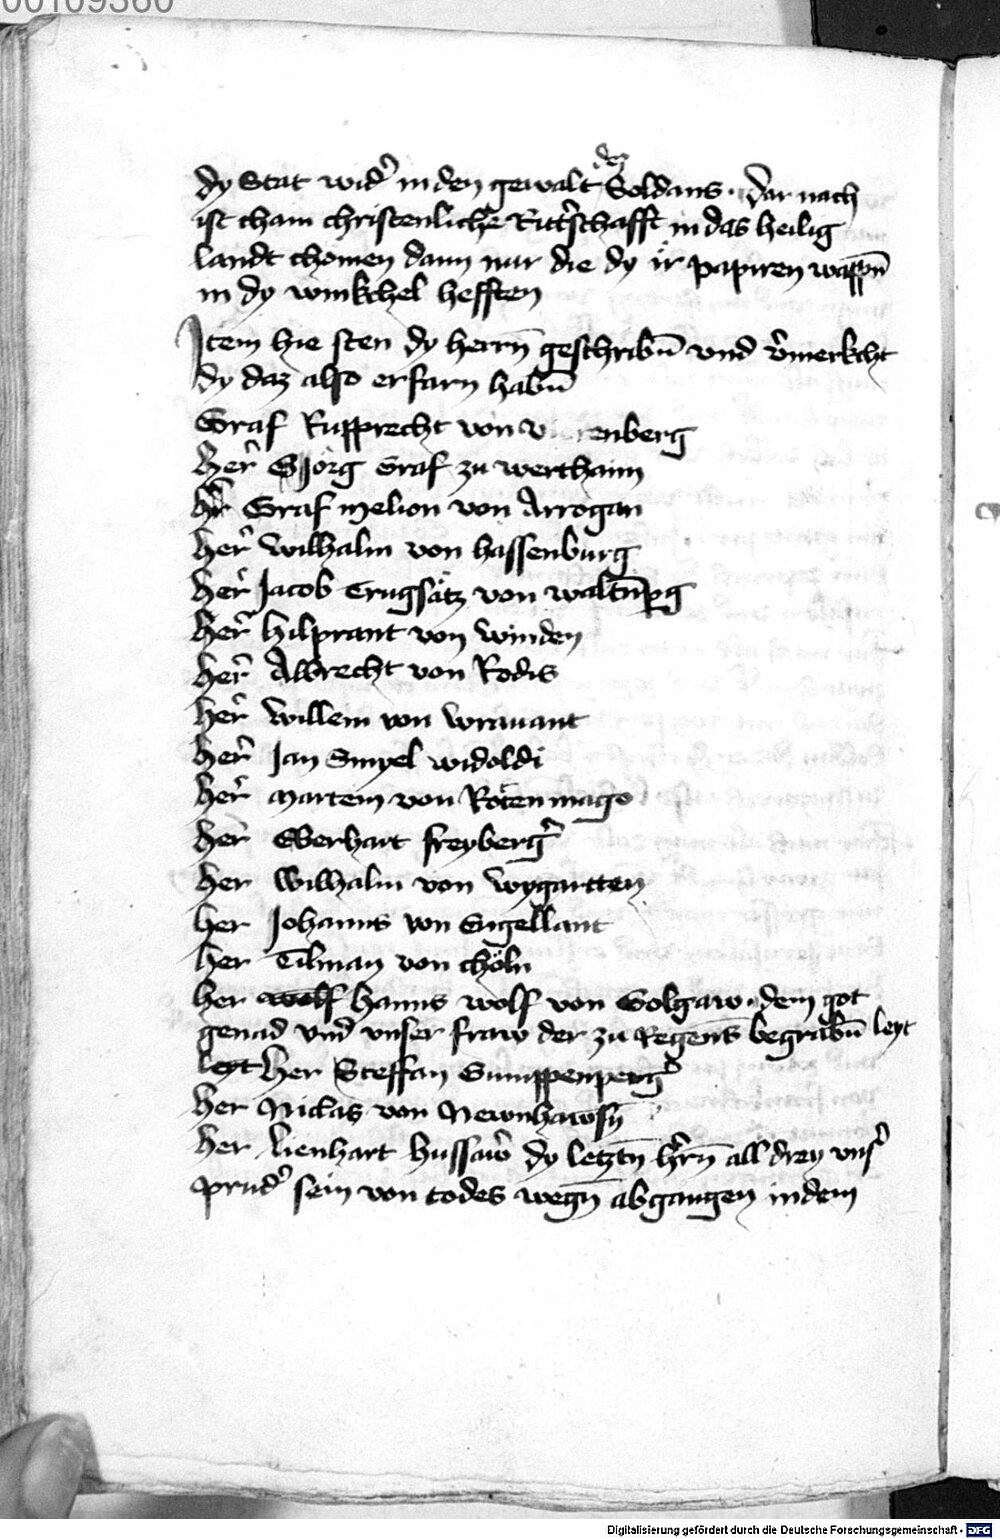 00109380
dy Stat wid' in den gewalt dez Soldans · dar nach
ist cham christenliche Ritt'schafft in das heilig
landt chomen dann nur die dy ir papiren wappn̄
in dy winkchel hefften
Item hie sten dy herrn̄ geschribn̄ vnd v'merkcht
dy daz also erfarn habn̄
Graf Rupprecht von enberg
her' Gjörg Graf zu werthaim
her Graf melion von Arrogan
her' wilhalm von hassenburg
her' Jacob Trugsätz von waltn̄pg
her' hilprant von winden
her' Albrecht von Rodis
her' willem von wrauant
her' Jan Smyel widoldi
her' martein von Rötenmago
her Eberhart freyberg'
her wilhalm von wygartten
her Johanns von Engellant
her Tilman von chöln
her wolf hanns wolf von Solgaw · dem got
genad vnd vnser fraw der zu Regens begrabn̄ leyt
leyt her Steffan Gumppenperg'
her Niclas von Newnhawsn̄
her lienhart hussaw' dy letztn̄ h'rn̄ all drey vns'
prud' sein von todes wegn̄ abgangen in dem
Digitalisierung gefördert durch die Deutsche Forschungsgemeinschaft - DFG